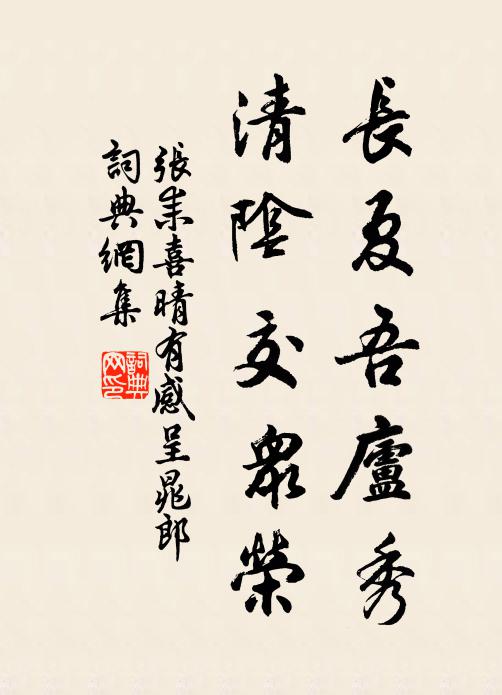 長夏吾廬秀
清陰交衆榮
張耒喜晴有感呈晁郎
詞典網集
詞典网印